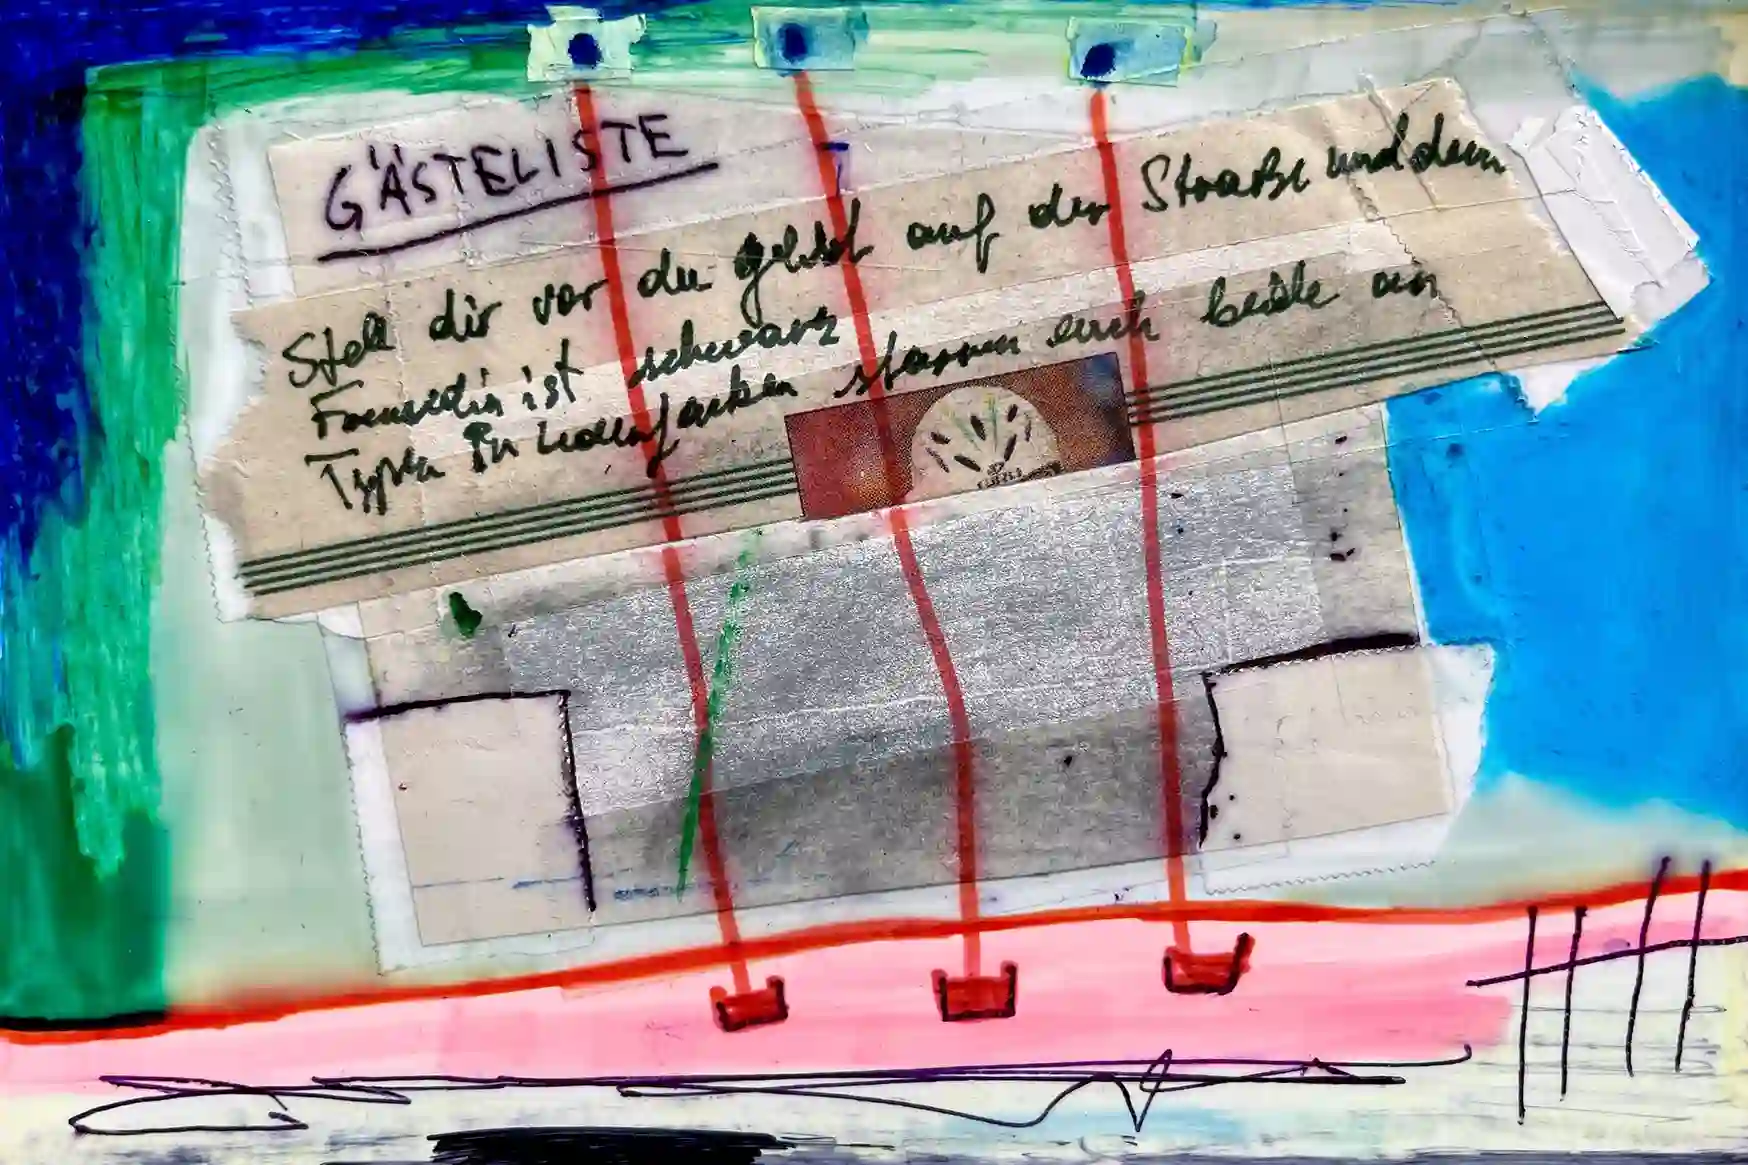 GÄSTELISTE
Stell dir vor du gehst auf der Straße und dein
Freundin ist schwarz
Typen in starren euch beide an